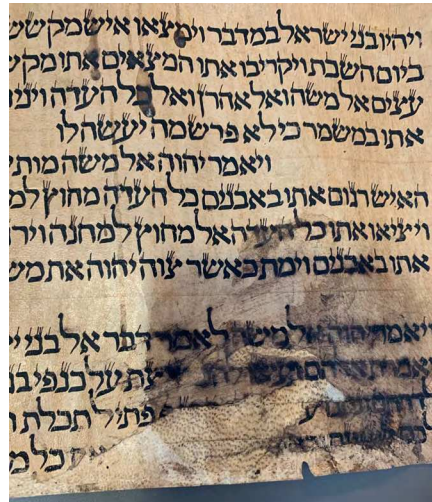 ויהיו בני ישראל במדבר וימצאו איש מקשש
ביום השבת ויקריבו אתו המצאים אתו מקש
עצים אל משה ואל אהרן ואל כל העדה ויני
אתו במשמר כי לא פרש מה יעשה לו
ויאמר יהוה אל משה מות
האיש רגום אתו באבנים כל העדה מחוץ
ויציאו אתו כל העדה אל מחוץ למחנה
אתו באבנים וימת כאשר צוה יהוה את מש
ויאמר יהוה אל משה לאמר דבר אל בני
ואמרת אלהם ועשו ציצת על כנפי
פתיל תכלת
כל